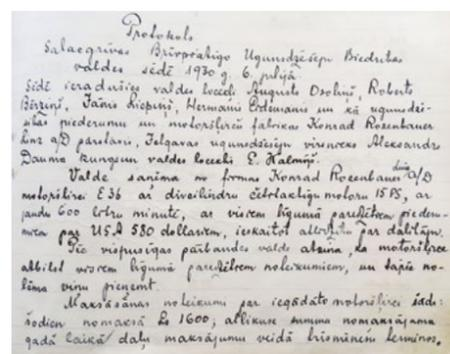 Protokols
Salacgrīvas Brīvprātīgo Ugunsdzēsēju Biedrības
valdes sēdē 1930 g. 6. jūlijā.
Sēdē ieradušies valdes locekļi Augusts Osoliņš, Roberts
Bērziņš, Jānis Liepiņš, Hermanis Erdmanis un kā ugunsdzē-
sības piederumu un motoršļirču fabrikas Konrad Rosenbauer
Linz a/D pārstāvis, Jelgavas ugunsdzēsēju virsnieks Aleksandrs
Dauma kungs un valdes loceklis E. Kalniņš.
Valde saņēma no firmas Konrad Rosenbauer Linz a/D
motoršļirci E 36 ar divcilindru četrtaktīgu motoru 15 PS, ar
jaudu 600 litru minutē, ar visiem līgumā paredzētiem piederu-
miem par USA 530 dollariem, ieskaitot par darbību.
Pēc vispusīgas pārbaudes valde atzina, ka motoršļirce
atbilst visiem līgumā paredzētiem noteikumiem, un tāpēc no-
lēma viņu pieņemt.
Maksāšanas noteikumi par iegādāto motoršļirci šādi:
šodien nomaksā Ls 1600, atlikuse summa nomaksājama
gada laikā daļu maksājumu veidā termiņos.